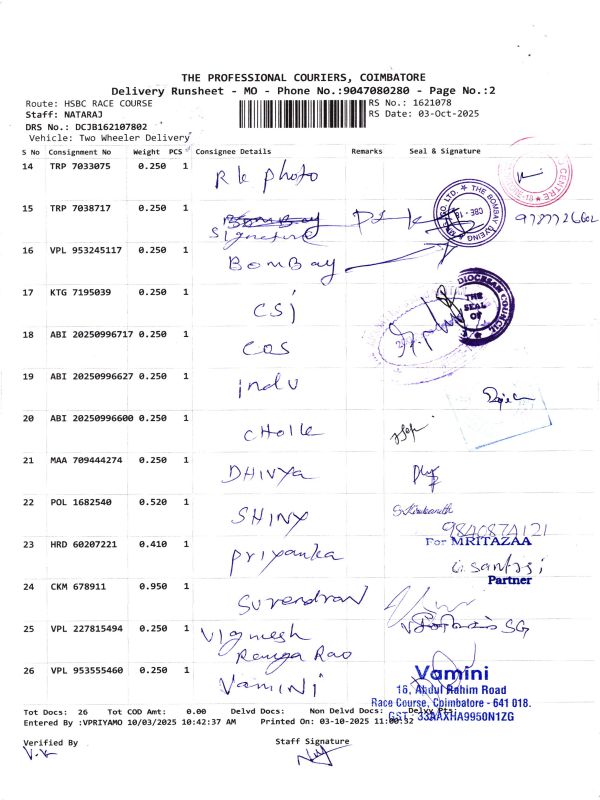 THE PROFESSIONAL COURIERS, COIMBATORE
Delivery Runsheet - MO - Phone No.:9047080280 - Page No.:2
Route: HSBC RACE COURSE
RS No.: 1621078
Staff: NATARAJ
RS Date: 03-Oct-2025
DRS No.: DCJB162107802
Vehicle: Two Wheeler Delivery
S No Consignment No Weight PCS Consignee Details Remarks Seal & Signature
14 TRP 7033075 0.250 1 Rk photo
15 TRP 7038717 0.250 1 Bombay
Signature
16 VPL 953245117 0.250 1 BomBay
17 KTG 7195039 0.250 1 CSI
THE BOMBAY DYEING
DIOCESAN COUNCIL
THE SEAL OF
18 ABI 20250996717 0.250 1 COS
19 ABI 20250996627 0.250 1 indu
20 ABI 20250996600 0.250 1 CHolle
21 MAA 709444274 0.250 1 DHIVYA
22 POL 1682540 0.520 1 SHINY
9840874121
23 HRD 60207221 0.410 1 Priyanka
For MRITAZAA
Partner
24 CKM 678911 0.950 1 Surendran
25 VPL 227815494 0.250 1 Vignesh
Ranga Rao
26 VPL 953555460 0.250 1 VAMINI
Vamini
16, Abdul Rahim Road
Race Course, Coimbatore - 641 018.
GST : 33AAXHA9950N1ZG
Tot Docs: 26 Tot COD Amt: 0.00 Delvd Docs: Non Delvd Docs: Delvy Pts:
Entered By :VPRIYAMO 10/03/2025 10:42:37 AM Printed On: 03-10-2025 11:00:32
Verified By
Staff Signature